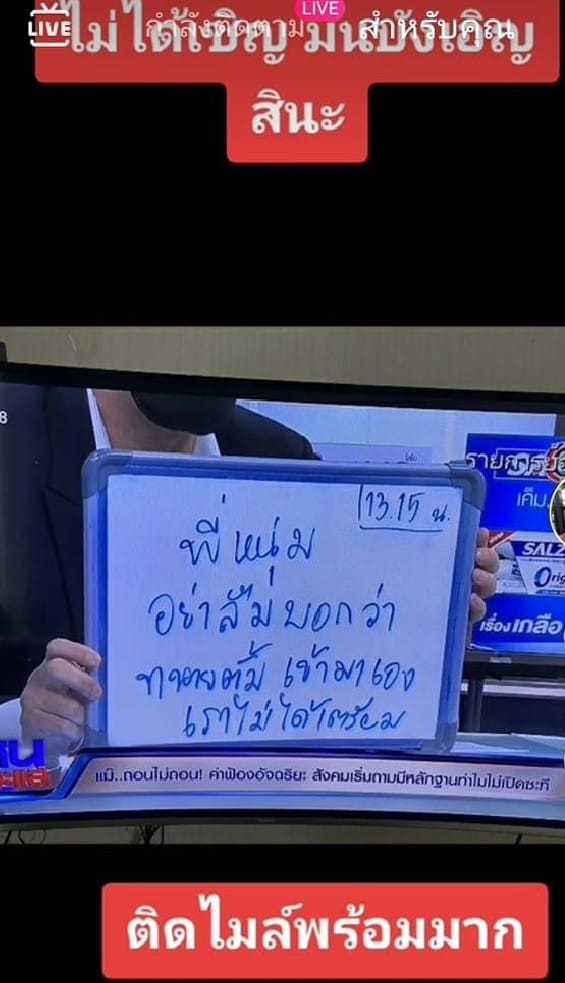 LIVE
LIVE
กำลังติดตาม
สำหรับคุณ
ไม่ได้เชิญ มันบังเอิญ
สินะ
8
รายการ
เค็ม
13.15 น.
พี่หนุ่ม
อย่าลืมบอกว่า
ทนายตั้ม เข้ามาเอง
เราไม่ได้เตรียม
SALZ
Orig
เรื่องเกลือ
แม้..ถอนไม่ถอน! ค่าฟ้องอัจฉริยะ สังคมเริ่มถามมีหลักฐานทำไมไม่เปิดซะที
ติดไมล์พร้อมมาก